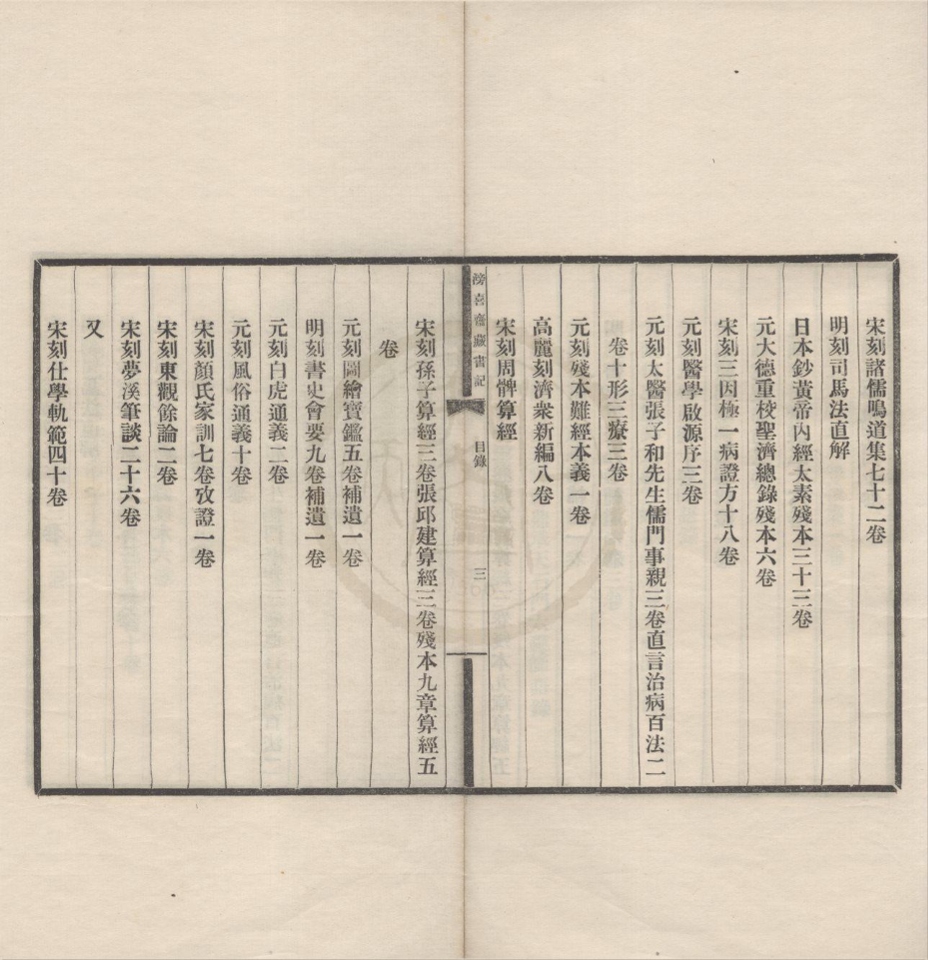 宋刻諸儒鳴道集七十二卷
明刻司馬法直解
日本鈔黃帝內經太素殘本三十三卷
元大德重校聖濟總錄殘本六卷
宋刻三因極一病證方十八卷
元刻醫學啟源序三卷
元刻太醫張子和先生儒門事親三卷直言治病百法二
卷十形三療三卷
元刻殘本難經本義一卷
高麗刻濟衆新編八卷
宋刻周髀算經
滂喜齋藏書記
目錄
三
宋刻孫子算經三卷張邱建算經三卷殘本九章算經五
卷
元刻圖繪寶鑑五卷補遺一卷
明刻書史會要九卷補遺一卷
元刻白虎通義二卷
元刻風俗通義十卷
宋刻顏氏家訓七卷攷證一卷
宋刻東觀餘論二卷
宋刻夢溪筆談二十六卷
又
宋刻仕學軌範四十卷